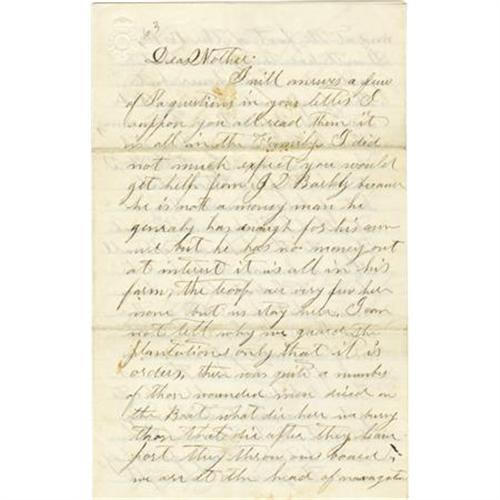 3
Dear Mother.
I will answer a few
of Pa questions in your letter I
suppon you all read them it
is all in the Family. I did
not much expect you would
get help from J D Barkly because
he is not a money man he
genraly has enough for his own
use but he has no money out
at interest it is all in his
farm, the troop are very few here
none but us stay here. I can
not tell why we guard the
plantations only that it is
orders, there was quite a number
of thos wounded men died on
the Boat what die here we bury
thos that die after they leave
port they throw over board,
we are at the head of navagation